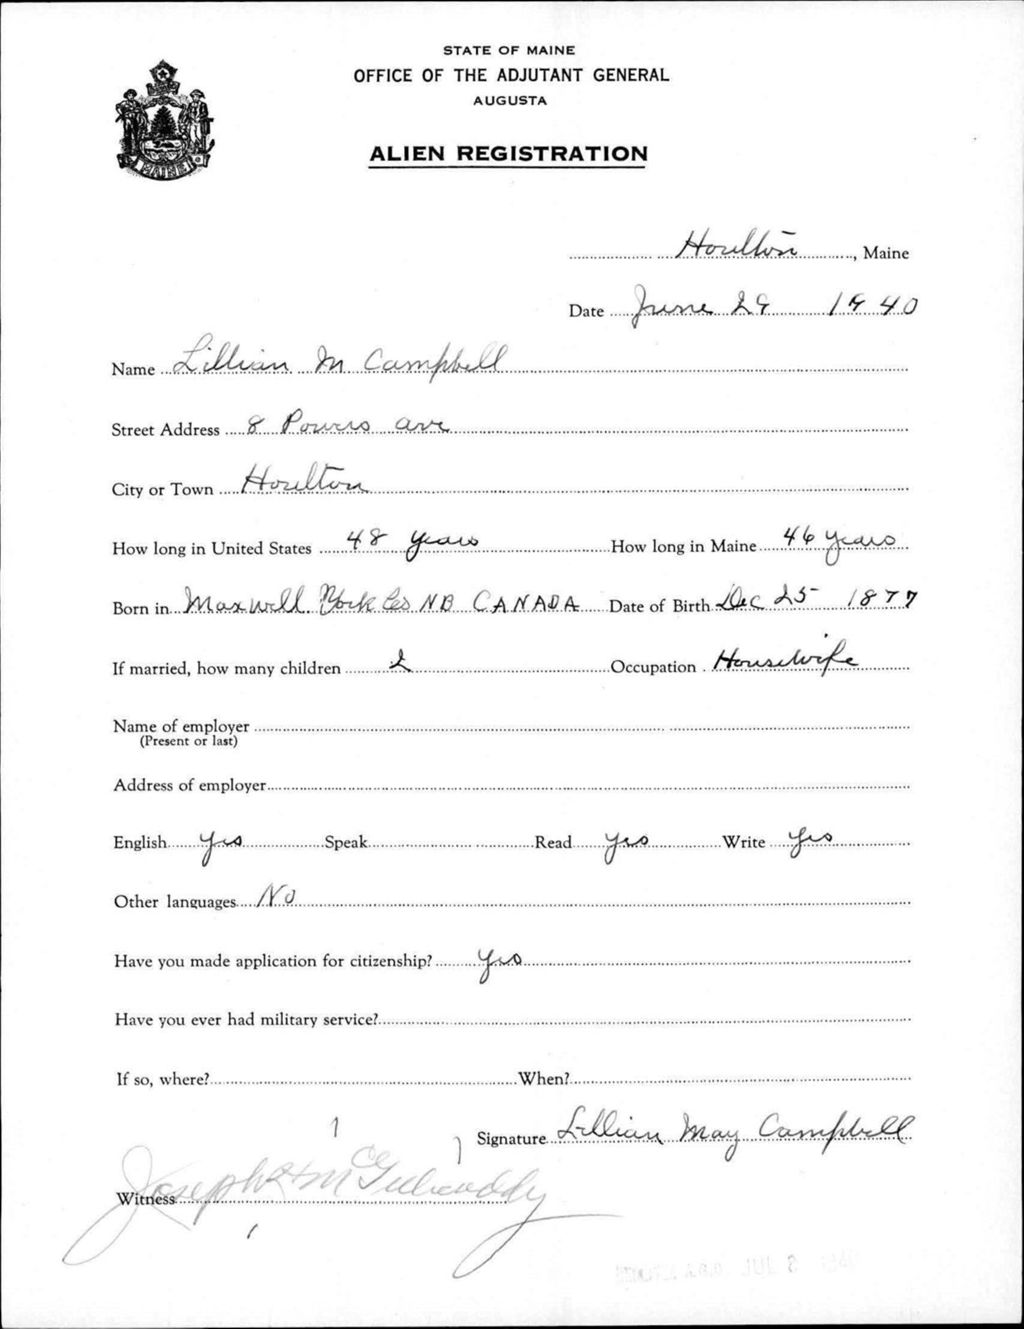 STATE OF MAINE
OFFICE OF THE ADJUTANT GENERAL
AUGUSTA
MAINE
ALIEN REGISTRATION
Houlton, Maine
Date June 29 1940
Name Lillian M Campbell
Street Address 8 Powers Ave
City or Town Houlton
How long in United States 48 years How long in Maine 46 years
Born in Maxwell York Co NB CANADA Date of Birth Dec 25 1877
If married, how many children 2 Occupation Housewife
Name of employer
(Present or last)
Address of employer
English yes Speak Read yes Write yes
Other languages No
Have you made application for citizenship? yes
Have you ever had military service?
If so, where? When?
Signature Lillian May Campbell
Witness Joseph
JUL